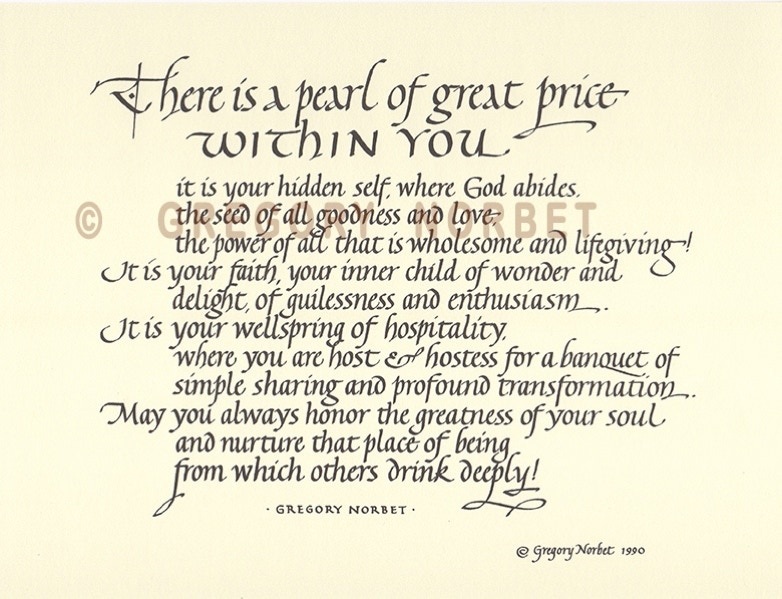 There is a pearl of great price
WITHIN YOU
it is your hidden self, where God abides,
the seed of all goodness and love,
© GREGORY NORBET
the power of all that is wholesome and lifegiving!
It is your faith, your inner child of wonder and
delight, of guilessness and enthusiasm.
It is your wellspring of hospitality,
where you are host & hostess for a banquet of
simple sharing and profound transformation.
May you always honor the greatness of your soul
and nurture that place of being
from which others drink deeply!
· GREGORY NORBET ·
© Gregory Norbet 1990